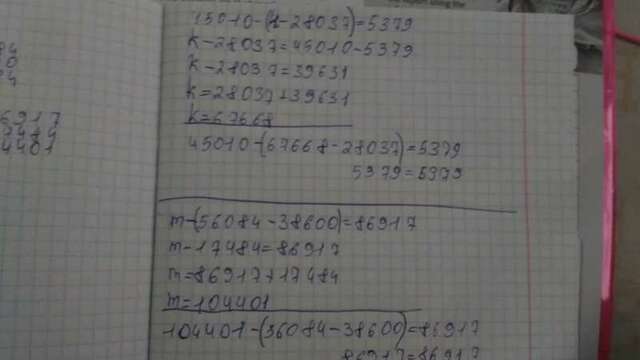 45010-(k-28037)=5379
k-28037=45010-5379
k-28037=39631
k=28037+39631
k=67668
45010-(67668-28037)=5379
5379=5379
m-(56084-38600)=86917
m-17484=86917
m=86917+17484
m=104401
104401-(56084-38600)=86917
86917=86917
6917
4401